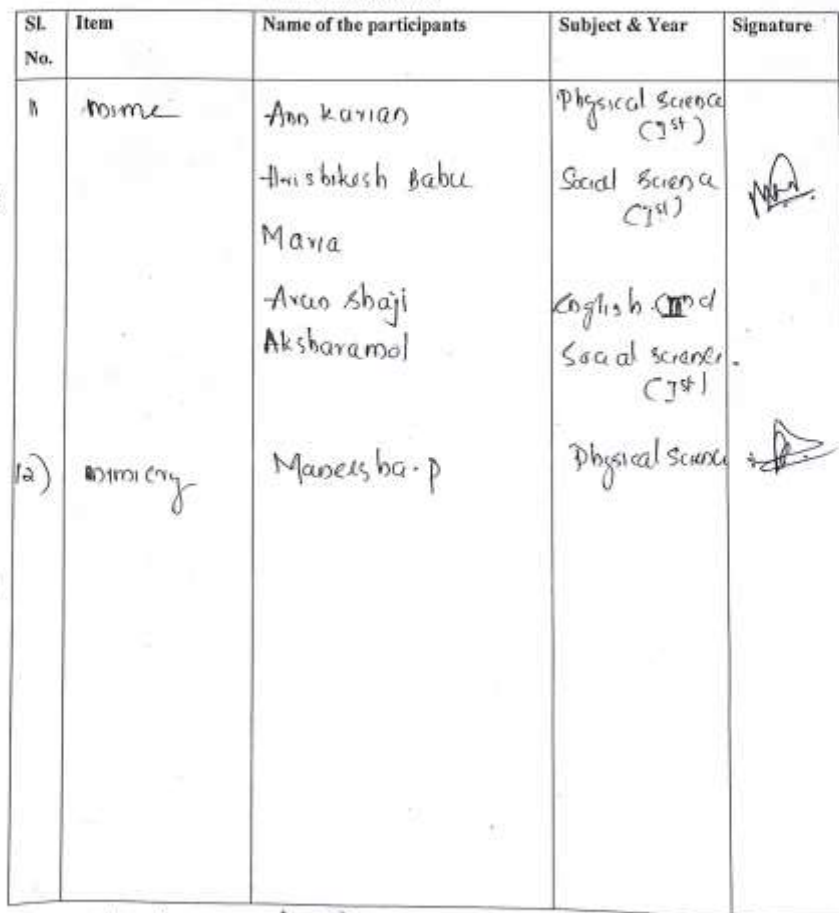 Sl. No. Item Name of the participants Subject & Year Signature
11 mime Ann Kurian Physical Science
(Ist)
Hrishikesh Babu Social Science
(Ist)
Maria
Arun Shaji English (IInd
Aksharamol Social science.
(Ist)
12) mimicry Maneesha. P Physical Science